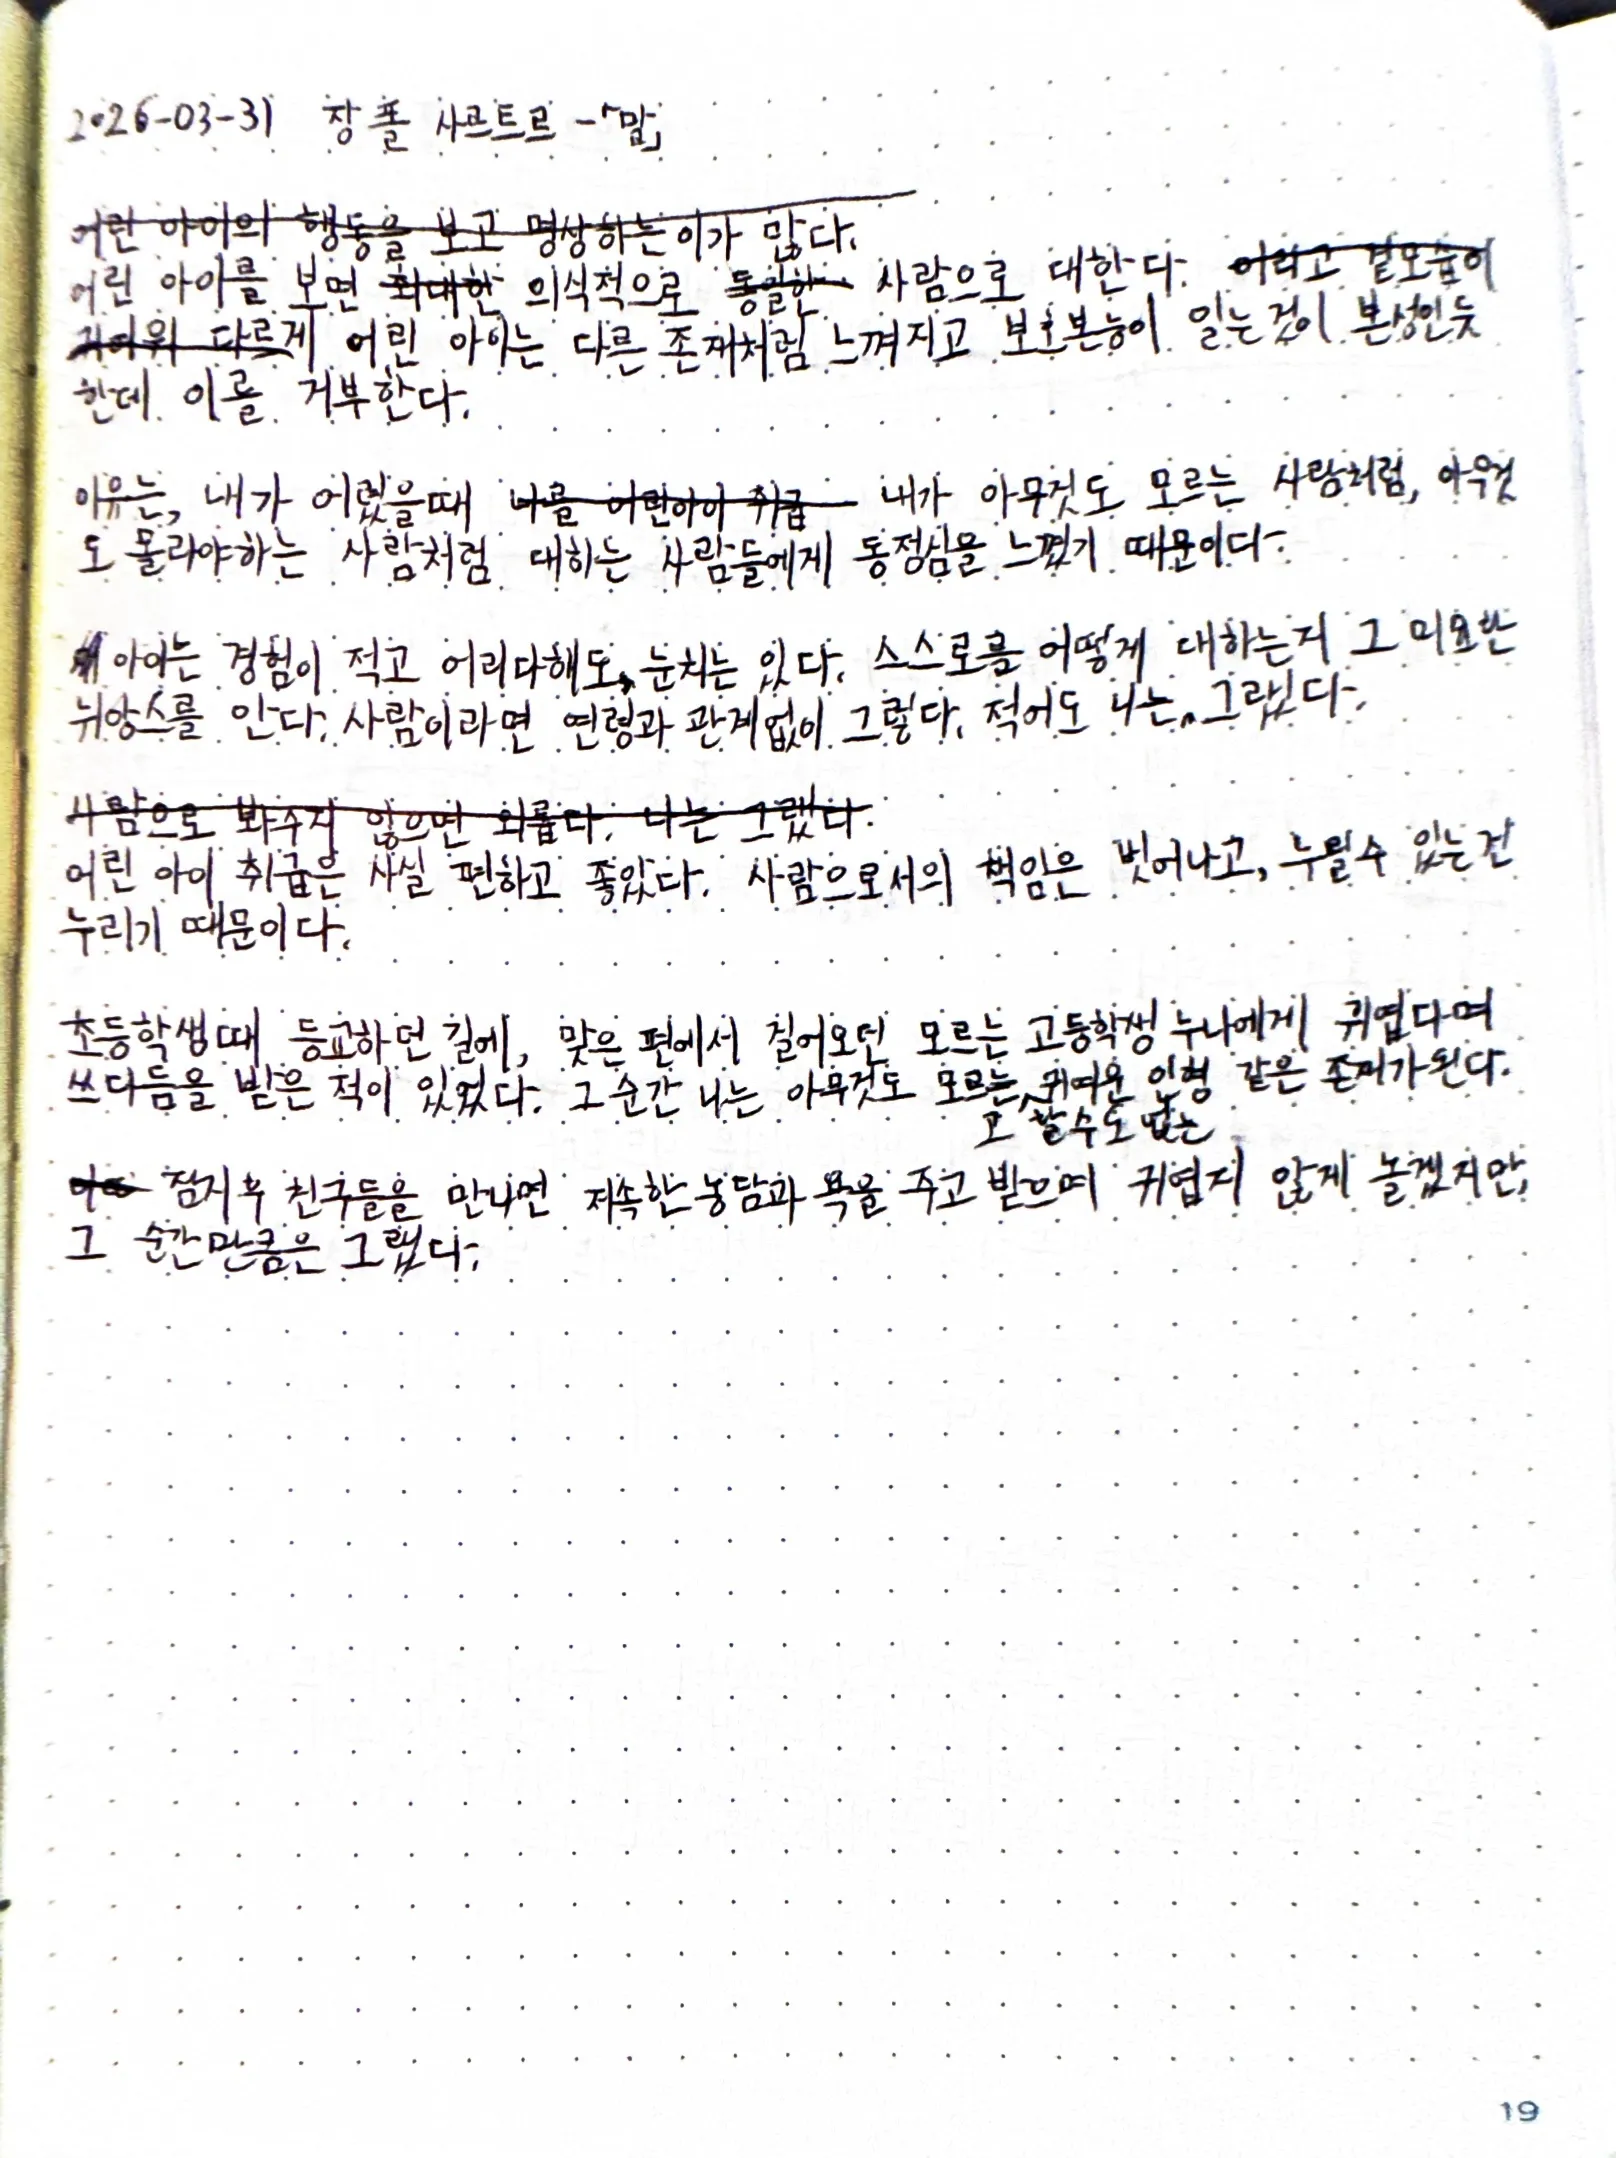 2026-03-31 장 폴 사르트르 -「말」
어린 아이의 행동을 보고 명상하는 이가 많다.
어린 아이를 보면 최대한 의식적으로 동일한 사람으로 대한다. 어리고 겉모습이
귀여워 다르게 어린 아이는 다른 존재처럼 느껴지고 보호본능이 일는것이 본성인듯
한데 이를 거부한다.
이유는, 내가 어렸을때 나를 어린아이 취급 내가 아무것도 모르는 사람처럼, 아무것
도 몰라야하는 사람처럼 대하는 사람들에게 동정심을 느꼈기 때문이다.
아이는 경험이 적고 어리다해도, 눈치는 있다. 스스로를 어떻게 대하는지 그 미묘한
뉘앙스를 안다. 사람이라면 연령과 관계없이 그렇다. 적어도 나는, 그랬다.
사람으로 봐주지 않으면 외롭다. 나는 그랬다.
어린 아이 취급은 사실 편하고 좋았다. 사람으로서의 책임은 벗어나고, 누릴수 있는건
누리기 때문이다.
초등학생때 등교하던 길에, 맞은 편에서 걸어오던 모르는 고등학생 누나에게 귀엽다며
쓰다듬을 받은 적이 있었다. 그 순간 나는 아무것도 모르는, 귀여운 인형 같은 존재가 된다.
고 할수도 없는
잠지후 친구들을 만나면 저속한 농담과 욕을 주고 받으며 귀엽지 않게 놀겠지만,
그 순간만큼은 그랬다.
19